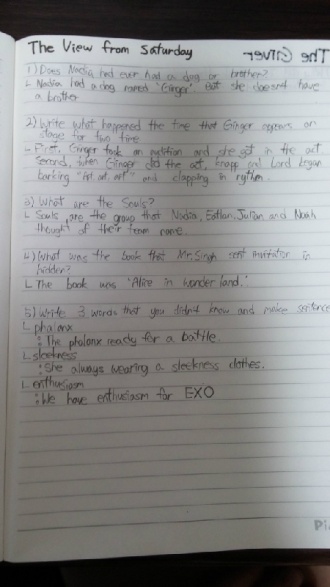 The View from Saturday
The Giver
1) Does Nadia had ever had a dog or brother?
↳ Nadia had a dog named 'Ginger'. But she doesn't have
a brother
2) Write what happened the time that Ginger appears on
stage for two time
↳ First, Ginger took an audition and she got in the act.
Second, when Ginger did the act, knapp and Lord began
barking "Arf. arf. arf" and clapping in rythm.
3) What are the Souls?
↳ Souls are the group that Nadia, Eathan, Julian and Noah
thought of their team name.
4) What was the book that Mr. Singh sent invitation in
hidden?
↳ The book was 'Alice in wonder land.'
5) Write 3 words that you didn't know and make sentence
↳ phalanx
: The phalanx ready for a battle.
↳ sleekness
: She always wearing a sleekness clothes.
↳ enthusiasm
: We have enthusiasm for EXO
Pi